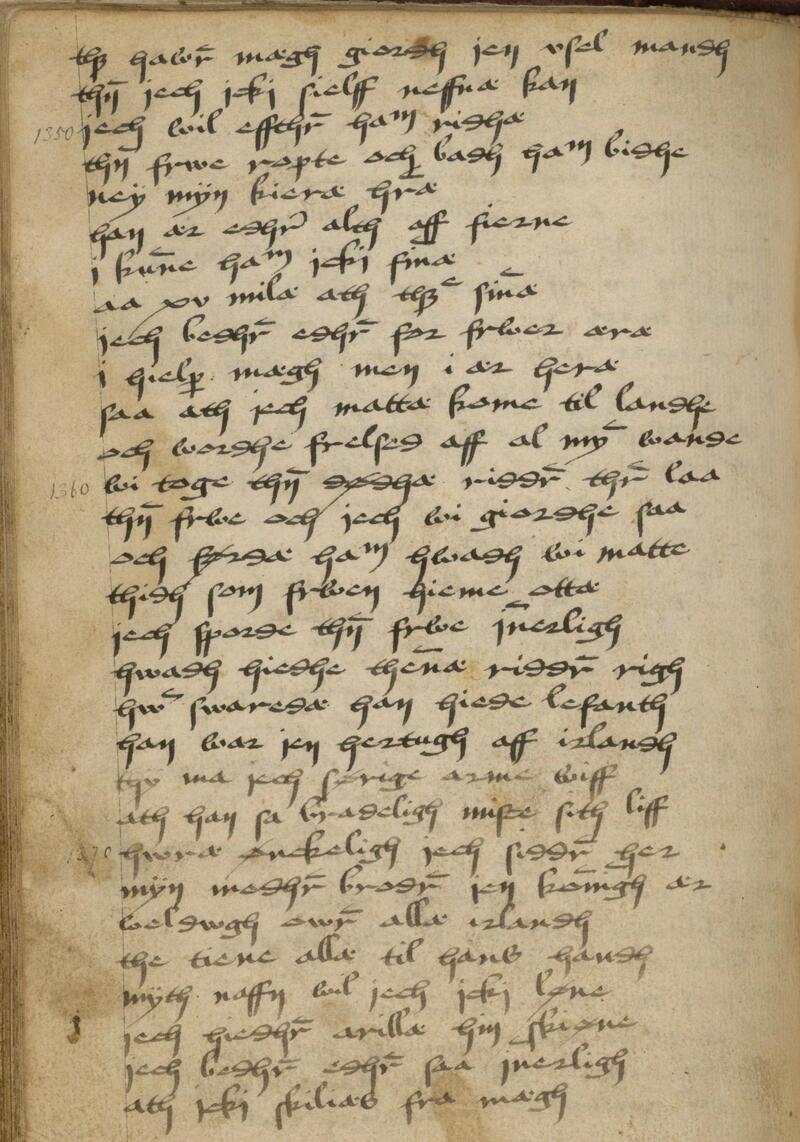 thꝫ hawr̄ mægh giordh jen vsel mandh
thn̄ jech jckj sielff neffnæ kan
1350 jech wil effthr̄ ham ridhæ
thn̄ frwe ropte och badh ham bidhe
ney myn kieræ hr̄æ
han ær edhr̄ alth aff fierne
i kūne ham jckj finæ
aa xv milæ ath thꝫe sin̄æ
jech bedhr̄ edhr̄ for frwer æræ
i hielꝑ mægh men i ær heræ
saa ath jech mattæ kome til landhe
och wordhe frelsed aff al mȳ wande
1360 wi toge thn̄ dødhæ riddr̄ thr̄ laa
thn̄ frwe och jech wi giordhe saa
och førdæ ham hwadh wi matte
thidh som frwen hieme ottæ
jech sporde thn̄ frwe jn̄erligh
hwadh hiedhe then̄æ riddr̄ righ
hw̄ swaredæ han hiede lefanth
han war jen hertugh aff irlandh
thy ma jech sørige arme wiff
ath han sa bradeligh miste sith liff
1370 hwræ ønckeligh jech siddr̄ her
myn modhr̄ brodr̄ jen kon̄igh ær
weldwgh owr̄ allæ irlandh
the tiene allæ til hans handh
myth naffn wil jech jckj løne
jech hiedhr̄ arillæ hin skiøne
jech bedhr̄ edhr̄ saa jnerligh
ath jckj skilias fra mægh